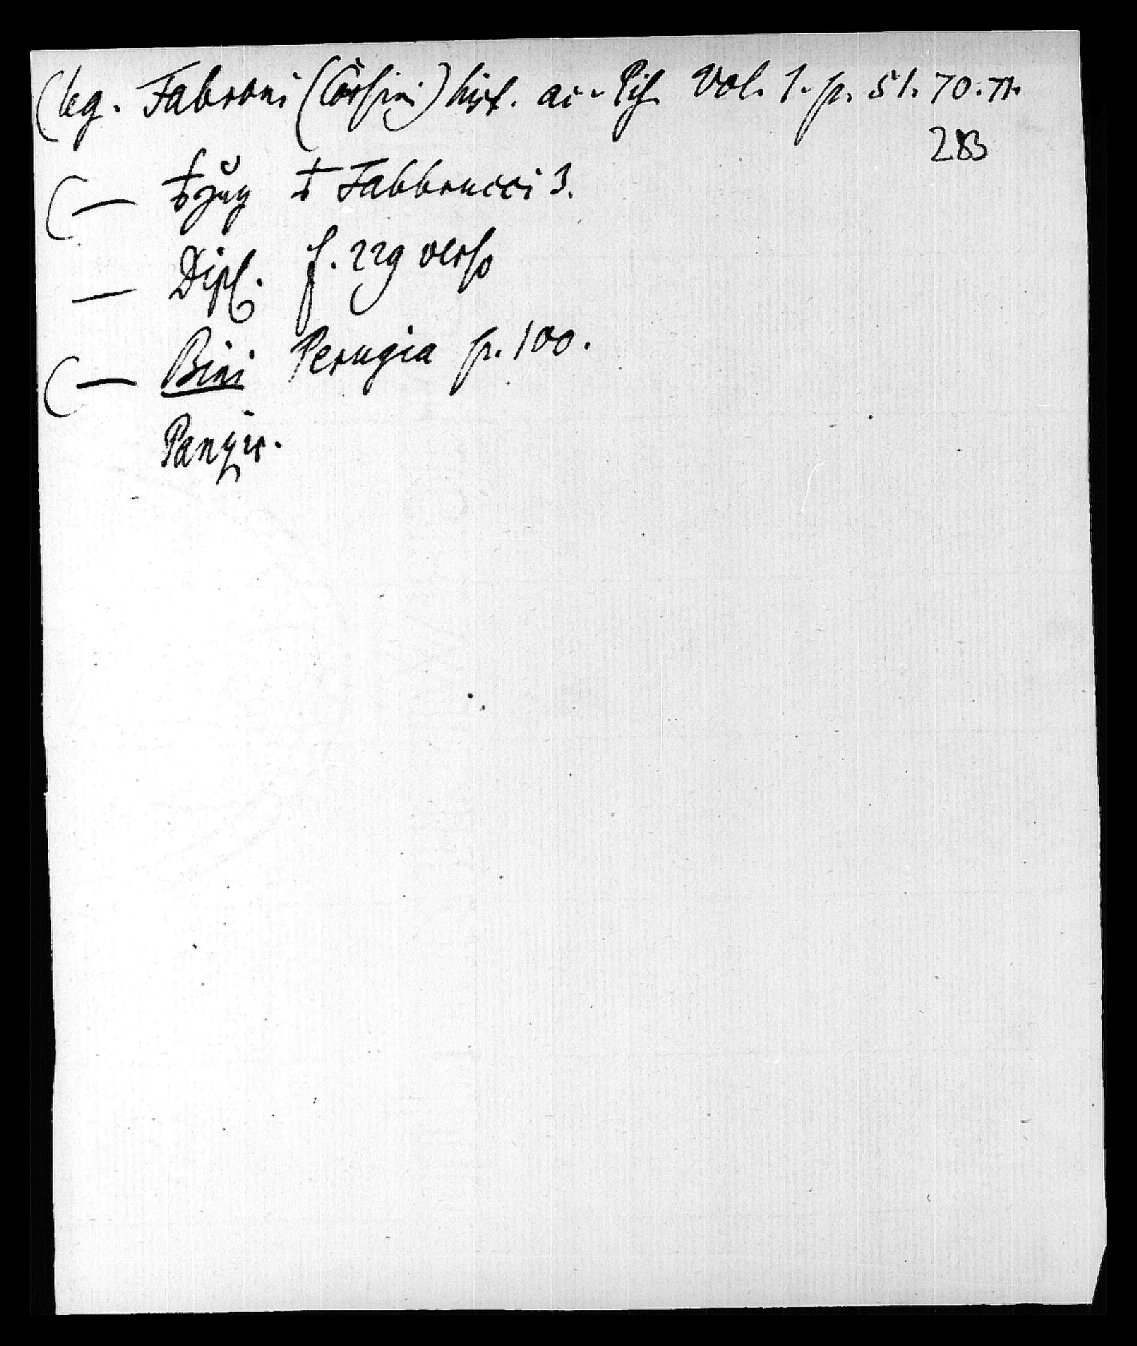 (leg. Fabroni (Corsini) hist. ac. Pis. Vol. 1. p. 51. 70. 71.
283
(— Fabbrucci 3.
— Dipl. f. 229 verso
(— Bini Perugia p. 100.
Panzir.